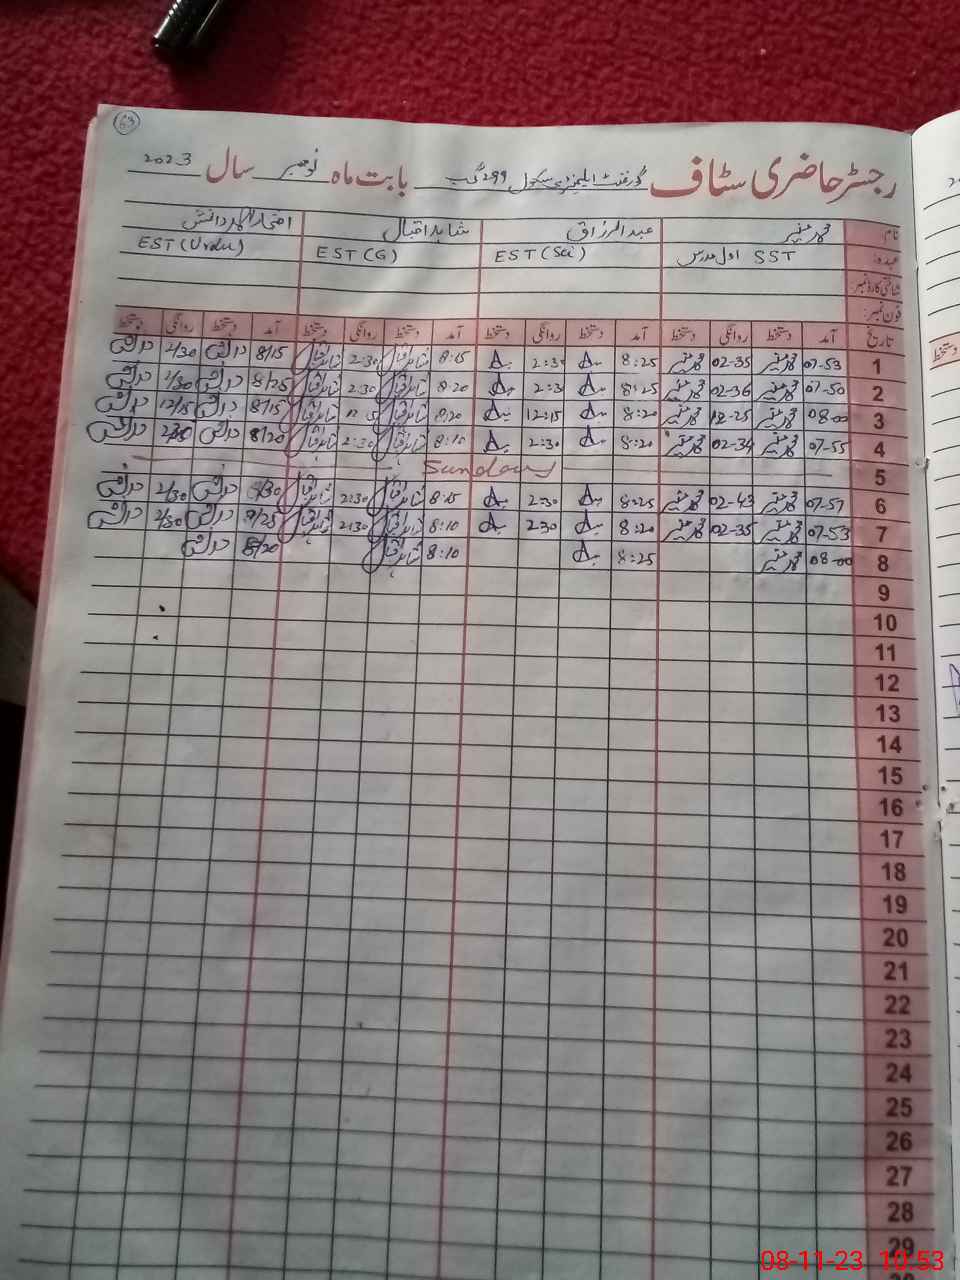 63
رجسٹر حاضری سٹاف گورنمنٹ ایلیمنٹری سکول 299 گ ب بابت ماہ نومبر سال 2023
نام: محمد منیر عبدالرزاق شاہد اقبال افتخار احمد دانش
عہدہ: SST اول مدرس EST (Sci) EST (G) EST (Urdu)
شناختی کارڈ نمبر:
فون نمبر:
تاریخ آمد دستخط روانگی دستخط آمد دستخط روانگی دستخط آمد دستخط روانگی دستخط آمد دستخط روانگی دستخط
1 07-53 محمد منیر 02-35 محمد منیر 8:25 2:30 8:15 شاہد اقبال 2:30 شاہد اقبال 8/15 دانش 2/30 دانش
2 07-50 محمد منیر 02-36 محمد منیر 8:25 2:3 8:20 شاہد اقبال 2:30 شاہد اقبال 8/25 دانش 2/30 دانش
3 08-00 محمد منیر 12-25 محمد منیر 8:20 12:15 8:20 شاہد اقبال شاہد اقبال 8/15 دانش 12/15 دانش
4 07-55 محمد منیر 02-34 محمد منیر 8:20 2:30 8:10 شاہد اقبال 2:30 شاہد اقبال 8/20 دانش 2/30 دانش
5 Sunday
6 07-57 محمد منیر 02-43 محمد منیر 8:25 2:30 8:15 شاہد اقبال 2:30 شاہد اقبال 8/30 دانش 2/30 دانش
7 07-53 محمد منیر 02-35 محمد منیر 8:20 2:30 8:10 شاہد اقبال 2:30 شاہد اقبال دانش 2/30 دانش
8 08-00 محمد منیر 8:25 8:10 شاہد اقبال 8/20 دانش
9
10
11
12
13
14
15
16
17
18
19
20
21
22
23
24
25
26
27
28
29
08-11-23 10:53